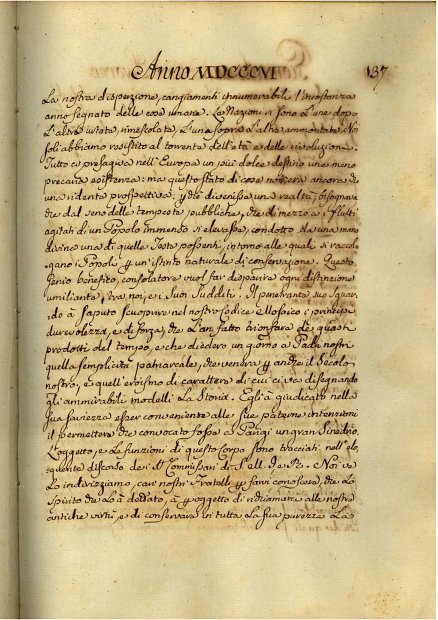 Anno MDCCCVI
137
La nostra dispersione, cangiamenti innumerabili l'incostanza
anno segnato delle cose umane. La Nazioni si sono l'una dopo
l'altra urtate, rimescolate, l'una sopra l'altra ammontate. Noi
soli abbiamo resistito al torrente dell'età e delle rivoluzioni.
Tutto ci presagiva nell'Europa un più dolce destino una meno
precaria esistenza: ma questo stato di cose non era ancora che
una ridente prospettiva; e per divenisse una realtà, bisognava
che dal seno delle tempeste pubbliche, che di mezzo a i flutti
agitati di un Popolo immenso si elevasse, condotto da una mano
divina una di quelle Teste possenti, intorno alle quali si raccol-
gano i Popoli per un istinto naturale di conservazione. Questo
Genio benefico, e consolatore vuol far disparire ogni distinzione
umiliante, tra noi, e i suoi Sudditi. Il penetrante suo sguar-
do à saputo scuoprire nel nostro Codice Mosaico i principi
durevolezza, e di forza, che l'an fatto trionfare de guasti
prodotti del tempo, e che diedero un giorno a Padri nostri
quella semplicità patriarcale, che venera per anche il Secolo
nostro, e quell'eroismo di carattere di cui ci va disegnando
gli ammirabili modelli La Storia. Egli à giudicato nella
sua saviezza esser conveniente alle sue paterne intenzioni
il permettere che convocato fosse a Parigi un gran Sinedrio.
L'oggetto, e le funzioni di questo Corpo sono tracciati nell'elo-
quente discorso dei SS. Commissari di S. M. I. e R. Noi ve
Lo indirizziamo, cari nostri Fratelli per farvi conoscere, che lo
Spirito che lo à dettato, à per oggetto di richiamare alle nostre
antiche virtù, e di conservare in tutta la sua purezza La